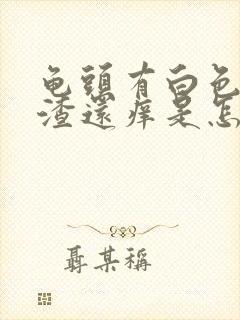 龟頭有白色
渣還痒是怎
聶某稱